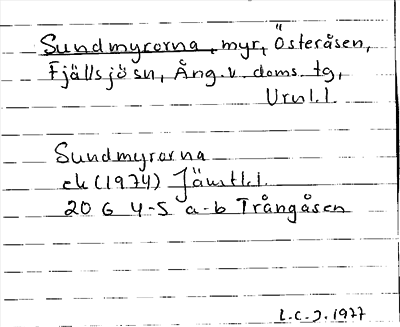 Sundmyrorna, myr, Österåsen,
Fjällsjö sn, Ång. v. doms. tg,
Vrnl.l.
Sundmyrorna
ek (1974) Jämtl.l.
20 G 4-5 a-b Trångåsen
L.C.J. 1977